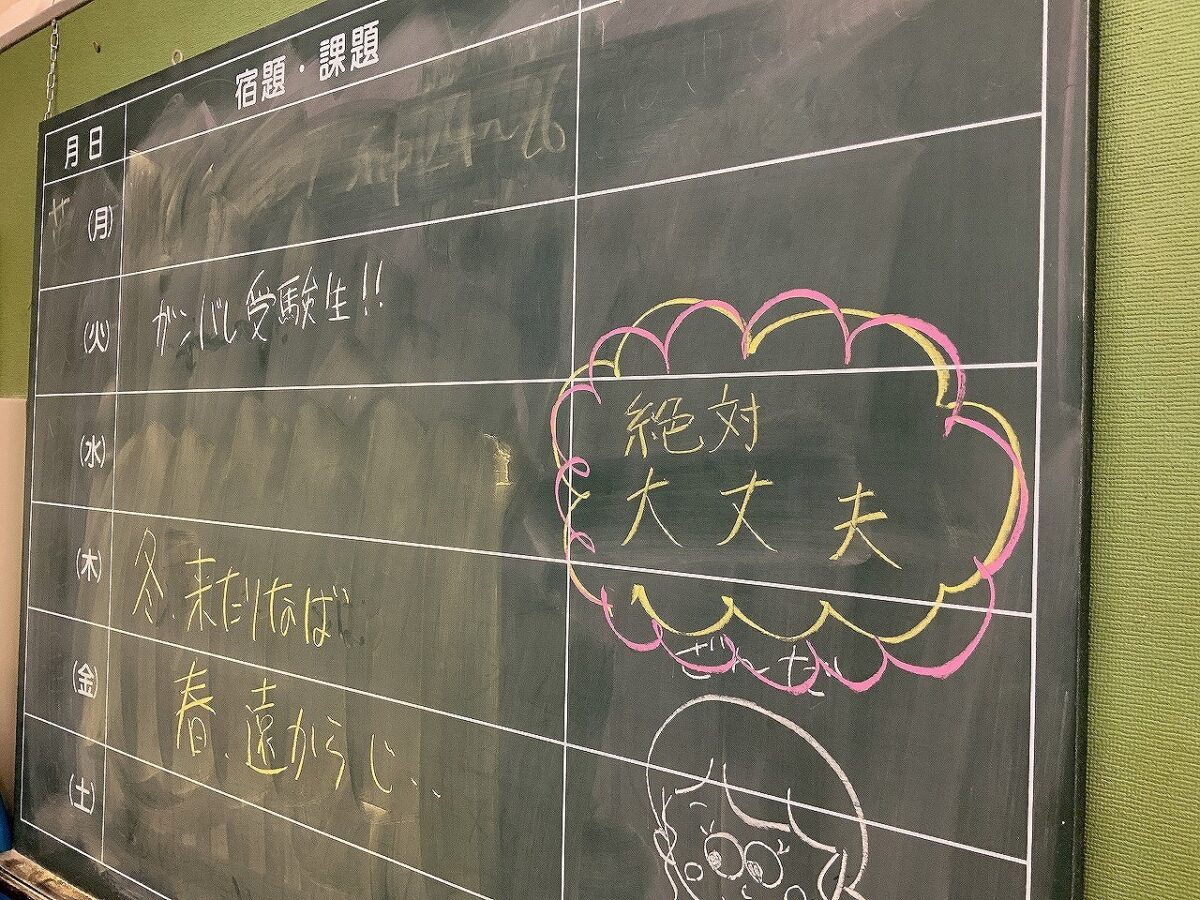 宿題・課題
月日
(月)
(火)
ガンバレ受験生!!
(水)
絶対
大丈夫
(木)
冬、来たりなば
(金)
春、遠からじ..
(土)